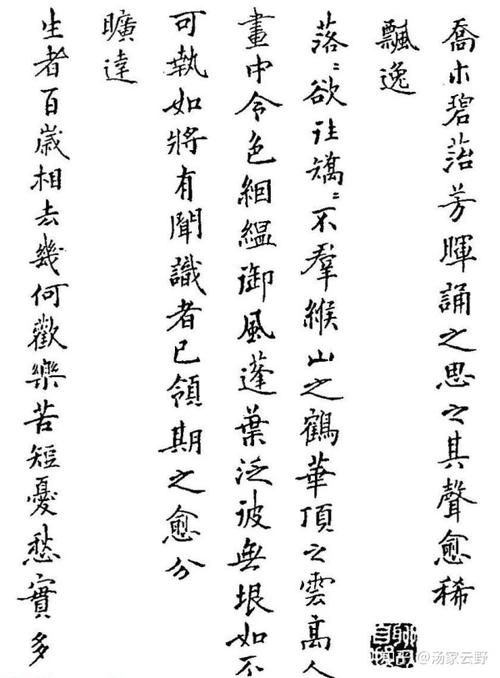 喬木碧菭芳暉誦之思之其聲愈稀
飄逸
落〻欲往矯〻不羣緱山之鶴華頂之雲高人
畫中令色絪縕御風蓬葉泛彼無垠如不
可執如將有聞識者已領期之愈分
曠達
生者百歲相去幾何歡樂苦短憂愁實多
知乎 @汤家云野